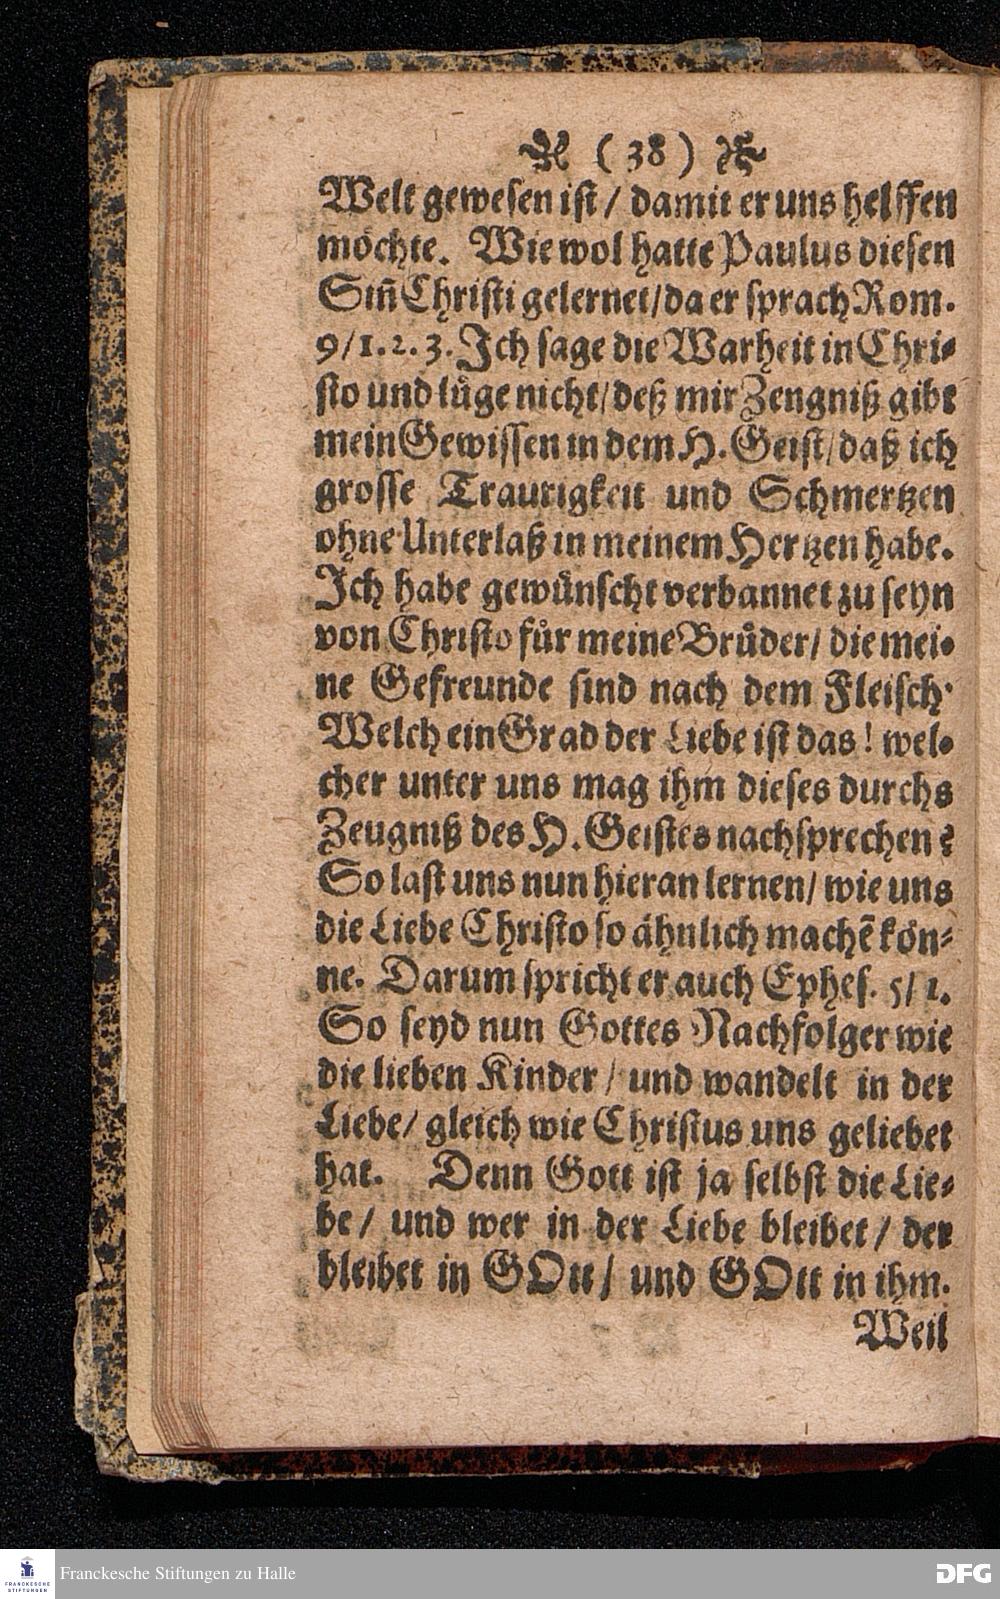 ( 38 )
Welt gewesen ist / damit er uns helffen
möchte. Wie wol hatte Paulus diesen
Sin̄ Christi gelernet/da er sprach Rom.
9/1.2.3. Ich sage die Warheit in Chri-
sto und lüge nicht/deß mir Zengniß gibt
mein Gewissen in dem H. Geist/daß ich
grosse Traurigkeit und Schmertzen
ohne Unterlaß in meinem Hertzen habe.
Ich habe gewünscht verbannet zu seyn
von Christo für meine Brüder/ die mei-
ne Gefreunde sind nach dem Fleisch.
Welch ein Grad der Liebe ist das! wel-
cher unter uns mag ihm dieses durchs
Zeugniß des H. Geistes nachsprechen?
So last uns nun hieran lernen/ wie uns
die Liebe Christo so ähnlich machē kön-
ne. Darum spricht er auch Ephes. 5/ 1.
So seyd nun Gottes Nachfolger wie
die lieben Kinder / und wandelt in der
Liebe/ gleich wie Christus uns geliebet
hat. Denn Gott ist ja selbst die Lie-
be / und wer in der Liebe bleibet / der
bleibet in GOtt / und GOtt in ihm.
Weil
FRANCKESCHE
STIFTUNGEN
Franckesche Stiftungen zu Halle
DFG